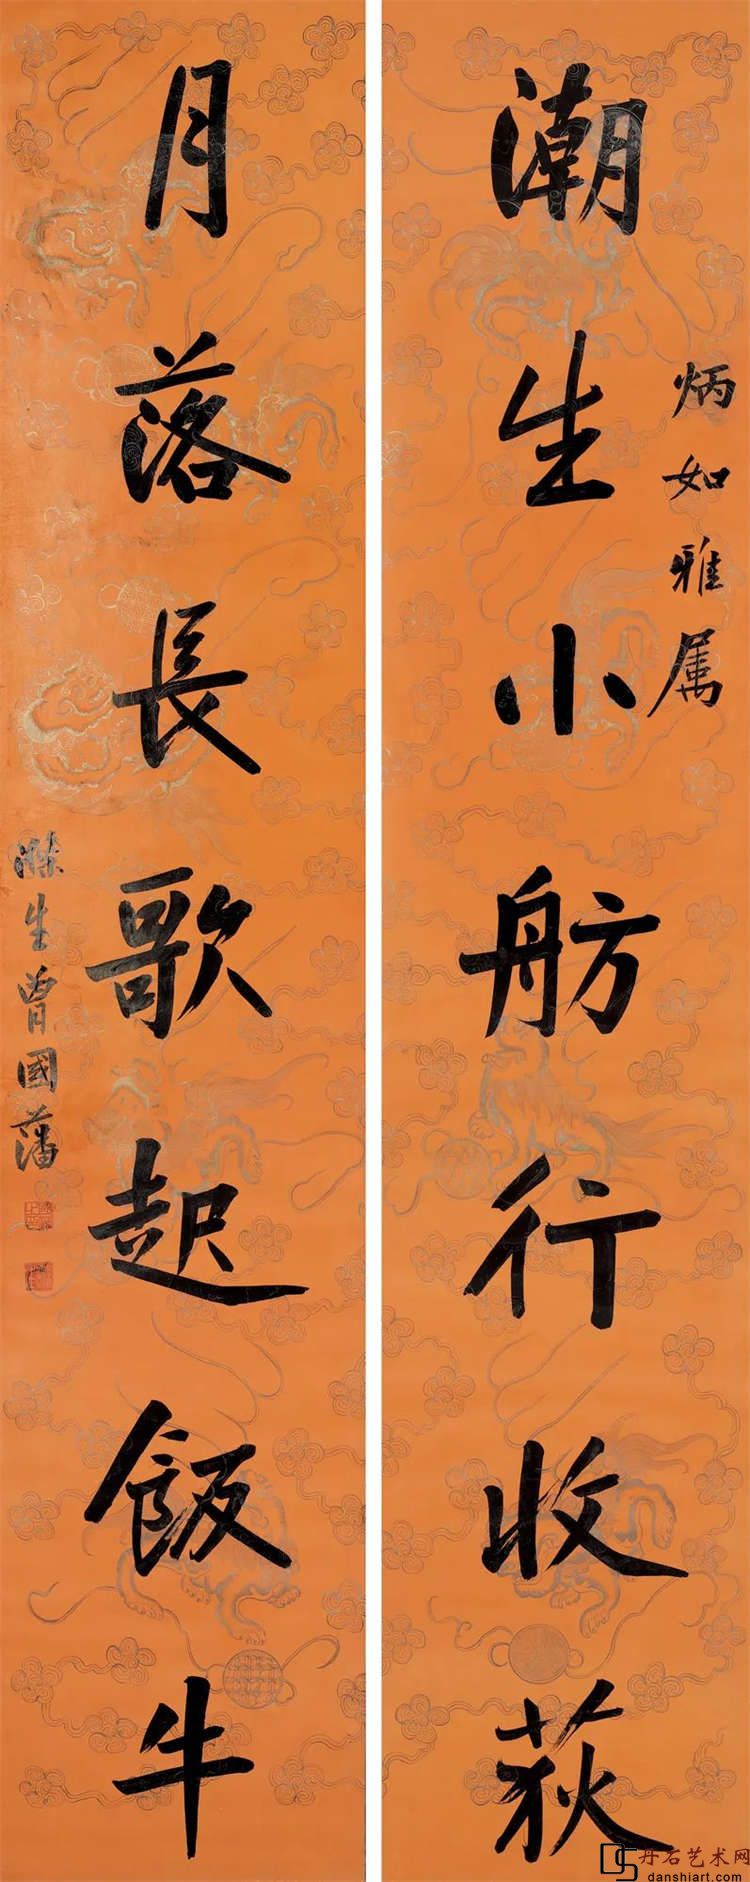 炳如雅属
潮生小舫行收荻
月落長歌起飯牛
滌生曾國藩
丹石艺术网
danshiart.com